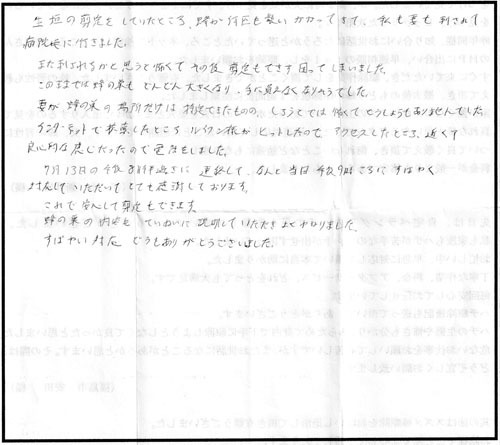 生垣の剪定をしていたところ、蜂が何匹も襲いかかってきて、私も妻も刺されて
病院に行きました。
また刺されるかと思うと怖くてその後 剪定もできず困ってしまいました。
このままでは蜂の巣も どんどん大きくなり、手に負えなくなりそうでした。
妻が 蜂の巣の場所だけは 特定できたものの、しろうとでは怖くてどうしようもありませんでした
インターネットで検索したところ ハチ がヒットしたので アクセスしたところ、近くて
良心的な感じだったので電話をしました。
7月13日の午後3時半過ぎに 連絡して、なんと当日 午後 ころに すばやく
対応していただいて、とても感謝しております。
これで 安心して剪定もできます。
蜂の巣の も ていねいに説明していただき よくわかりました。
すばやい対応 どうもありがとうございました。